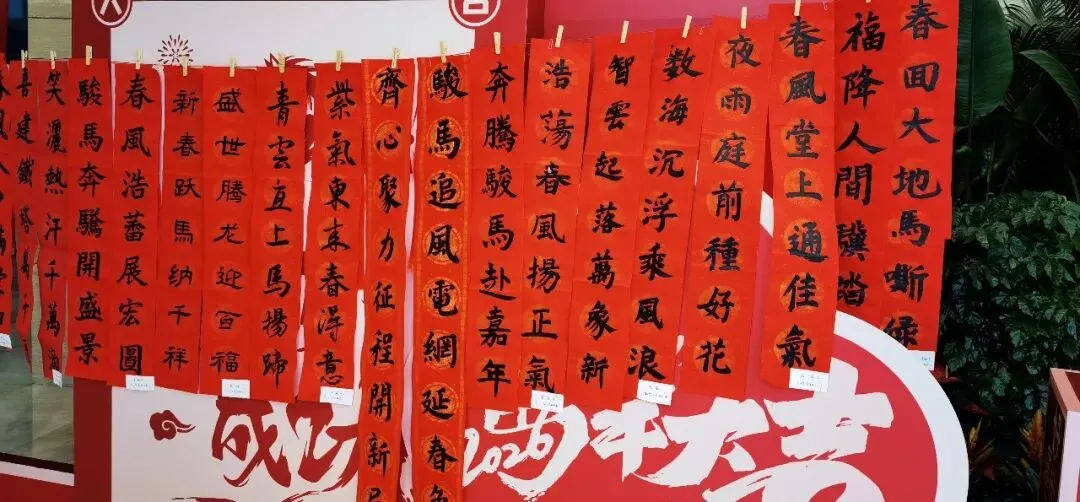 大
吉
春囬大地馬嘶綠
福降人間驥踏
春風堂上通佳氣
夜雨庭前種好花
數海沉浮乘風浪
智雲起落萬象新
浩蕩春風揚正氣
奔騰駿馬赴嘉年
駿馬追風電網延春
齊心聚力征程開新
紫氣東来春得意
青雲直上馬揚蹄
盛世腾龙迎百福
新春跃馬纳千祥
春風浩蕩展宏圖
駿馬奔騰開盛景
笑灑熱汗千萬
喜建鐵塔萬
2026
大吉